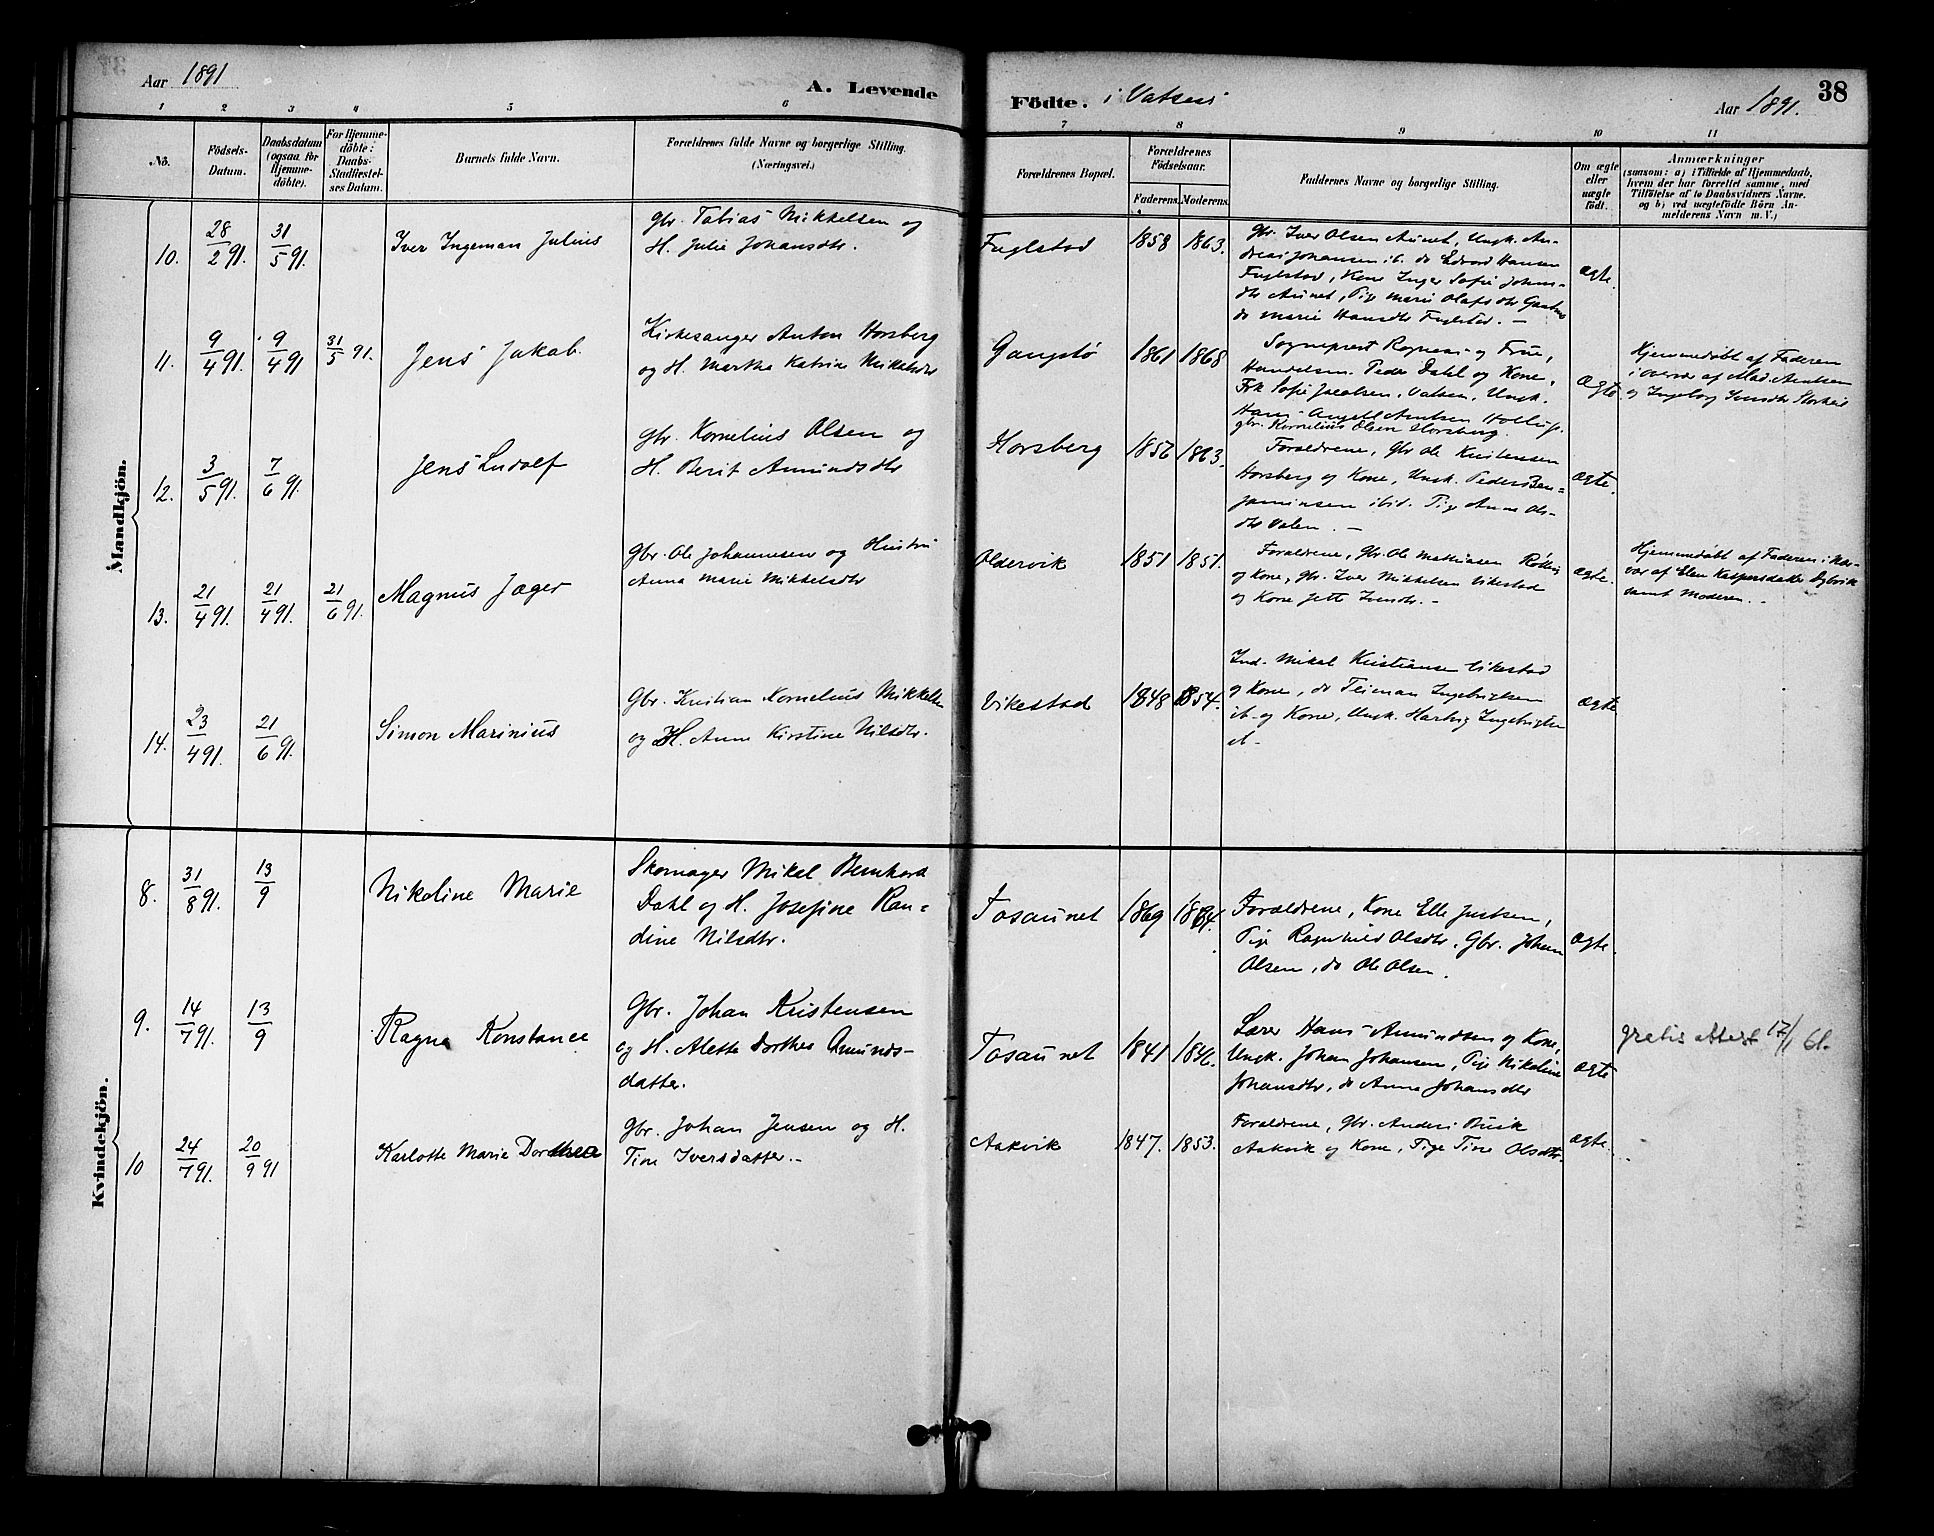 Aar 1891
A. Levende
Födte. i Vatsen
Aar 1891.
38
1 2 3 4 5 6 7 8 9 10 11
No.
Födsels-
Datum.
Daabsdatum
(ogsaa for
Hjemme-
döbte).
For Hjemme-
döbte:
Daabs-
Stadfæstel-
ses Datum.
Barnets fulde Navn.
Forældrenes fulde Navne og borgerlige Stilling.
(Næringsvei.)
Forældrenes Bopæl.
Forældrenes
Födselsaar.
Faderens. Moderens.
Faddernes Navne og borgerlige Stilling.
Om ægte
eller
uægte
födt.
Anmærkninger
(saasom: a) i Tilfælde af Hjemmedaab,
hvem der har forrettet samme, med
Tilföielse af to Daabsvidners Navne.
og b) ved uægtefödte Börn An-
melderens Navn m. V.)
Mandkjön.
10. 28/2 91. 31/5 91. Iver Ingeman Julius
Gbr. Tobias Mikkelsen og
H. Julie Johansdtr.
Fuglstad 1858 1863.
Gbr. Iver Olsen Aunet, Ungk. An-
dreas Johansen ib. do Edvard Hansen
Fuglstad, Kone Inger Sofie Johans-
dtr Aunet, Pige Marie Olafsdtr
do Marie Hansdtr Fuglstad. –
ægte.
11. 9/4 91. 9/4 91 31/5 91. Jens Jakob.
Kirkesanger Anton Horsberg
og H. Martha Katrine Mikkelsdtr
Gangstö 1861 1868
Sogneprest Rogness og Frue,
Handelsm. Peder Dahl og Kone,
Frk Sofie Jacobsen, Vatsen, Ungk.
Hans Angell Arntsen
gbr. Kornelius Olsen Horsberg.
ægte
Hjemmedöbt af Faderen
i overvær af Mad. Arntsen
og Ingeborg
12. 3/5 91. 7/6 91. Jens Ludolf
Gbr. Kornelius Olsen og
H. Berit Amundsdtr
Horsberg 1856 1863.
Forældrene, Gbr Ole Kristensen
Horsberg og Kone, Ungk. Peder Ben-
jaminsen ibid. Pige Anne Ols-
dtr Valen. –
ægte.
13. 21/4 91. 21/4 91. 21/6 91. Magnus Jæger
Gbr. Ole Johannesen og Hustru
Anna Marie Mikkelsdtr
Oldervik 1851 1851.
Forældrene, Gbr. Ole Mathiasen
og Kone, Gbr. Iver Mikkelsen Vikestad
og Kone Jett –
ægte.
Hjemmedöbt af Faderen i nær-
vær af Elen Kaspersdatter
samt Moderen. –
14. 23/4 91. 21/6 91. Simon Marinius
Gbr. Kristian Kornelius Mikkelsen
og H. Anne Kirstine Nilsdtr.
Vikestad 1848 1854.
Ind. Mikal Kristiansen Vikestad
og Kone, do Teiman Ingebrigtsen
ib. og Kone, Ungk. Hartvig Ingebrigtsen
ib –
ægte
Kvindekjön.
8. 31/8 91. 13/9 Nikoline Marie
Skomager Mikal Bernhard
Dahl og H. Josefine Ran-
dine Nilsdtr.
Tosaunet 1869 1864.
Forældrene, Kone Elle Justsen,
Pige Ragnhild Olsdtr. Gbr. Johan
Olsen, do Ole Olsen.
ægte.
9. 14/7 91. 13/9 Ragna Konstance
Gbr. Johan Kristensen
og H. Alette Dorthea Amunds-
datter.
Tosaunet 1841 1846.
Lærer Hans Amundsen og Kone,
Ungk. Johan Johansen, Pige Nikoline
Johansdtr, do Anna Johansdtr
ægte
gratis attest 17/1 61.
10 24/7 91. 20/9 91 Karlotte Marie Dorthea
Gbr. Johan Jensen og H.
Tine Iversdatter. –
Aakvik 1847. 1853.
Forældrene, Gbr. Anders Busk
Aakvik og Kone, Pige Tine Olsdtr.
ægte.